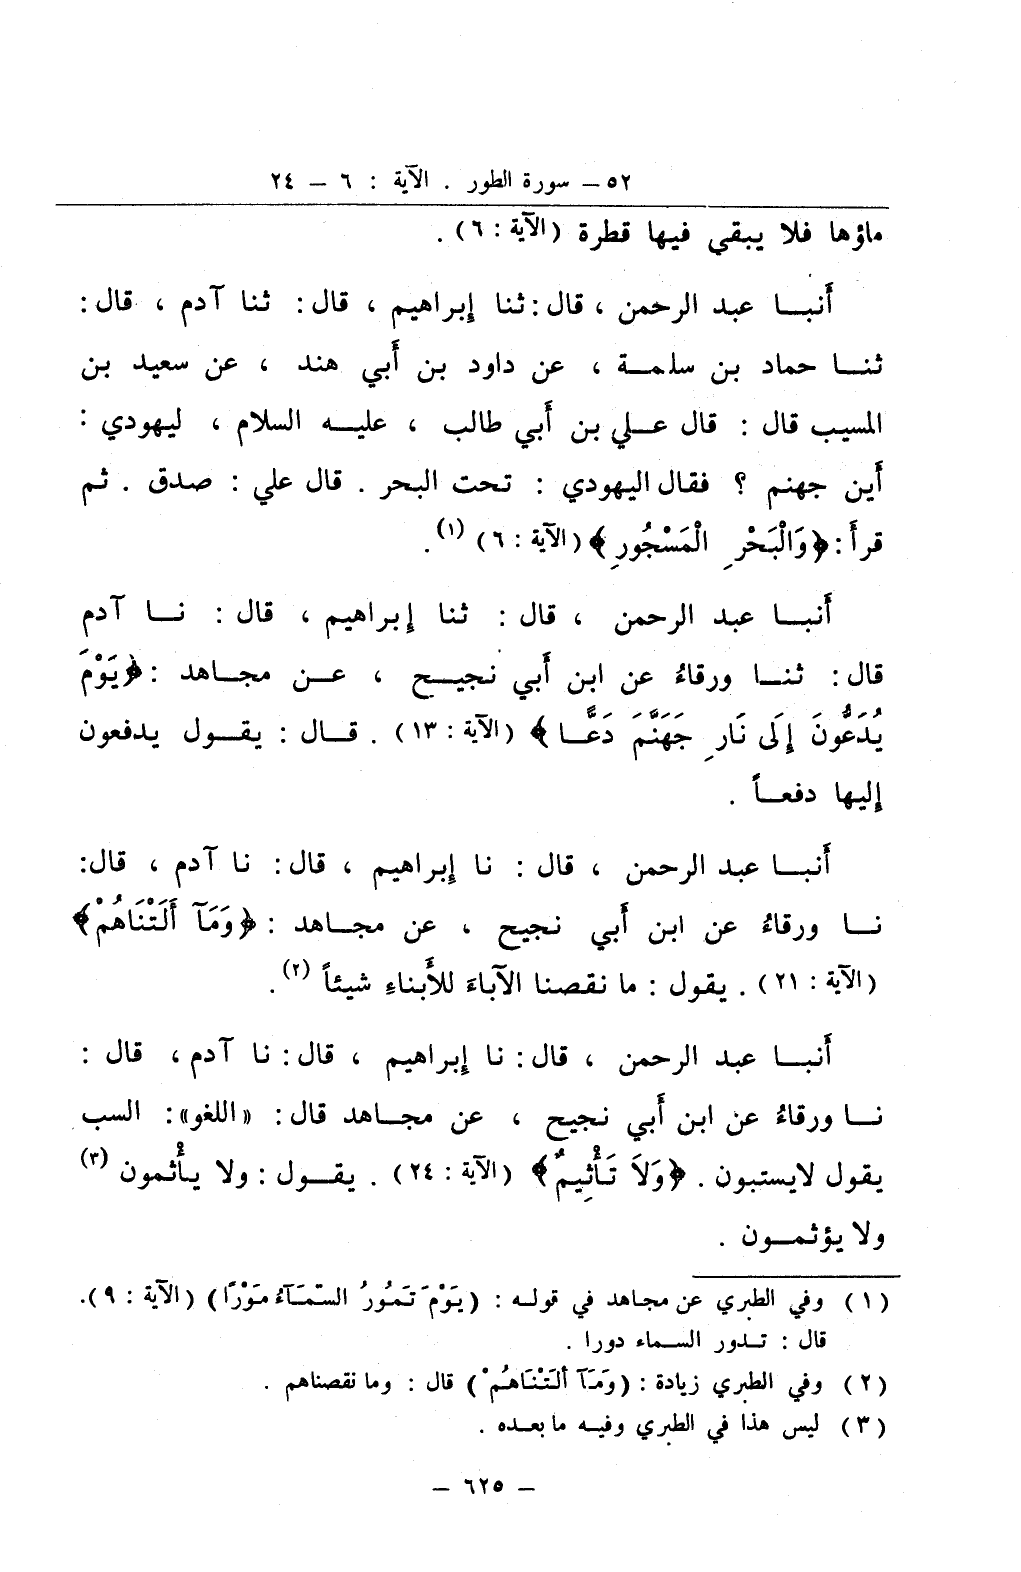 ٥٢ – سورة الطور . الآية : ٦ – ٢٤
ماؤها فلا يبقي فيها قطرة (الآية : ٦) .
أنبا عبد الرحمن ، قال : ثنا إبراهيم ، قال : ثنا آدم ، قال :
ثنا حماد بن سلمة ، عن داود بن أبي هند ، عن سعيد بن
المسيب قال : قال علي بن أبي طالب ، عليه السلام ، ليهودي :
أين جهنم ؟ فقال اليهودي : تحت البحر . قال علي : صدق . ثم
قرأ : ﴿وَالْبَحْرِ الْمَسْجُورِ﴾ (الآية : ٦) (١) .
أنبا عبد الرحمن ، قال : ثنا إبراهيم ، قال : نا آدم
قال : ثنا ورقاءُ عن ابن أبي نجيح ، عن مجاهد : ﴿يَوْمَ
يُدَعُّونَ إِلَى نَارِ جَهَنَّمَ دَعًّا﴾ (الآية : ١٣) . قال : يقول يدفعون
إليها دفعاً .
أنبا عبد الرحمن ، قال : نا إبراهيم ، قال : نا آدم ، قال :
نا ورقاءُ عن ابن أبي نجيح ، عن مجاهد : ﴿وَمَآ أَلَتْنَاهُمْ﴾
(الآية : ٢١) . يقول : ما نقصنا الآباءَ للأَبناءِ شيئاً (٢) .
أنبا عبد الرحمن ، قال : نا إبراهيم ، قال : نا آدم ، قال :
نا ورقاءُ عن ابن أبي نجيح ، عن مجاهد قال : «اللغو» : السب
يقول لايستبون . ﴿وَلاَ تَأْثِيمٌ﴾ (الآية : ٢٤) . يقول : ولا يأْثمون (٣)
ولا يؤثمون .
(١) وفي الطبري عن مجاهد في قوله : (يَوْمَ تَمُورُ السَّمَآءُ مَوْرًا) (الآية : ٩) .
قال : تدور السماء دورا .
(٢) وفي الطبري زيادة : (وَمَآ أَلَتْنَاهُمْ) قال : وما نقصناهم .
(٣) ليس هذا في الطبري وفيه ما بعده .
– ٦٢٥ –